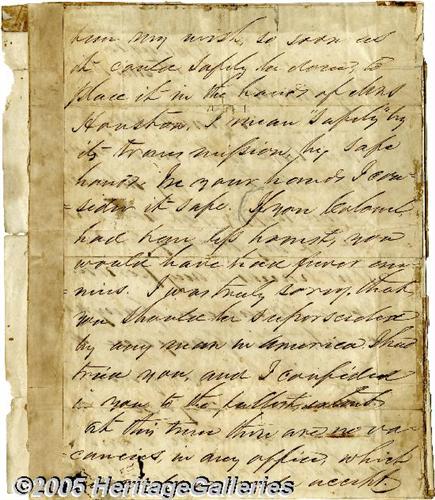 been my wish, so soon as
it could safely be done, to
place it in the hands of Mrs
Houston. I mean "safely" by
its transmission, by safe
hands. In your hands I con-
=sider it safe. If you Colonel,
had been less honest, you
would have had fewer ene-
mies. I was truly sorry, that
you should be superseded
by any man in America. I had
tried you, and I confided
in you to the fullest extent.
at this time there are no va-
cancies in any office, which
accept
©2005 HeritageGalleries